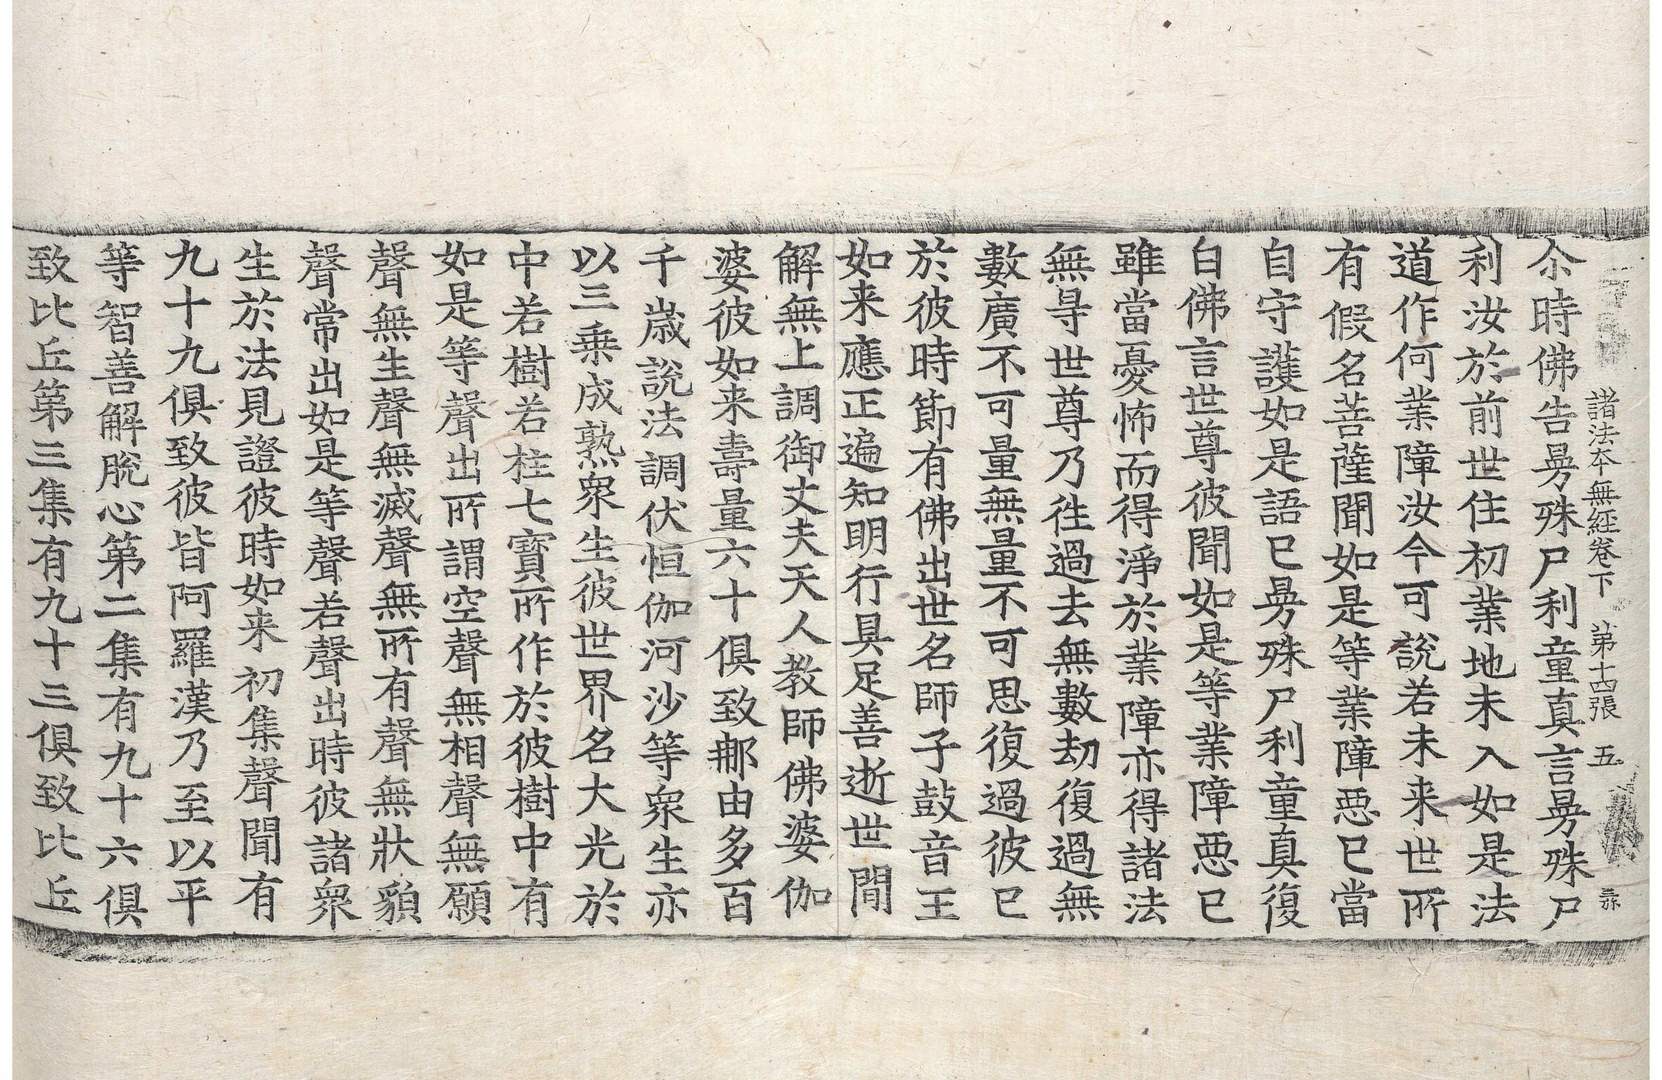 諸法夲無経卷下　第十四張　五
尒時佛告㬅殊尸利童真言㬅殊尸
利汝於前世住初業地未入如是法
道作何業障汝今可說若未来世所
有假名菩薩聞如是等業障𢙣已當
自守護如是語已㬅殊尸利童真復
白佛言世尊彼聞如是等業障𢙣已
雖當憂怖而得淨於業障亦得諸法
無㝵世尊乃徃過去無數劫復過無
數廣不可量無量不可思復過彼已
於彼時節有佛出世名師子鼓音王
如来應正遍知明行具足善逝世間
解無上調御丈夫天人教師佛婆伽
婆彼如来壽量六十俱致𨙻由多百
千歲說法調伏恒伽河沙等衆生亦
以三乗成熟衆生彼世界名大光於
中若樹若柱七寶所作於彼樹中有
如是等聲出所謂空聲無相聲無願
聲無生聲無滅聲無所有聲無狀貌
聲常出如是等聲若聲出時彼諸衆
生於法見證彼時如来初集聲聞有
九十九俱致彼皆阿羅漢乃至以平
等智善解脫心第二集有九十六俱
致比丘第三集有九十三俱致比丘